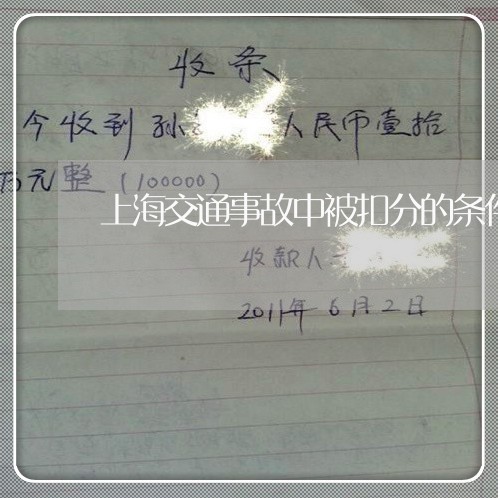 收条
今收到孙 人民币壹拾
万元整(100000)
上海交通事故中被扣分的条件
收款人
2011年6月2日